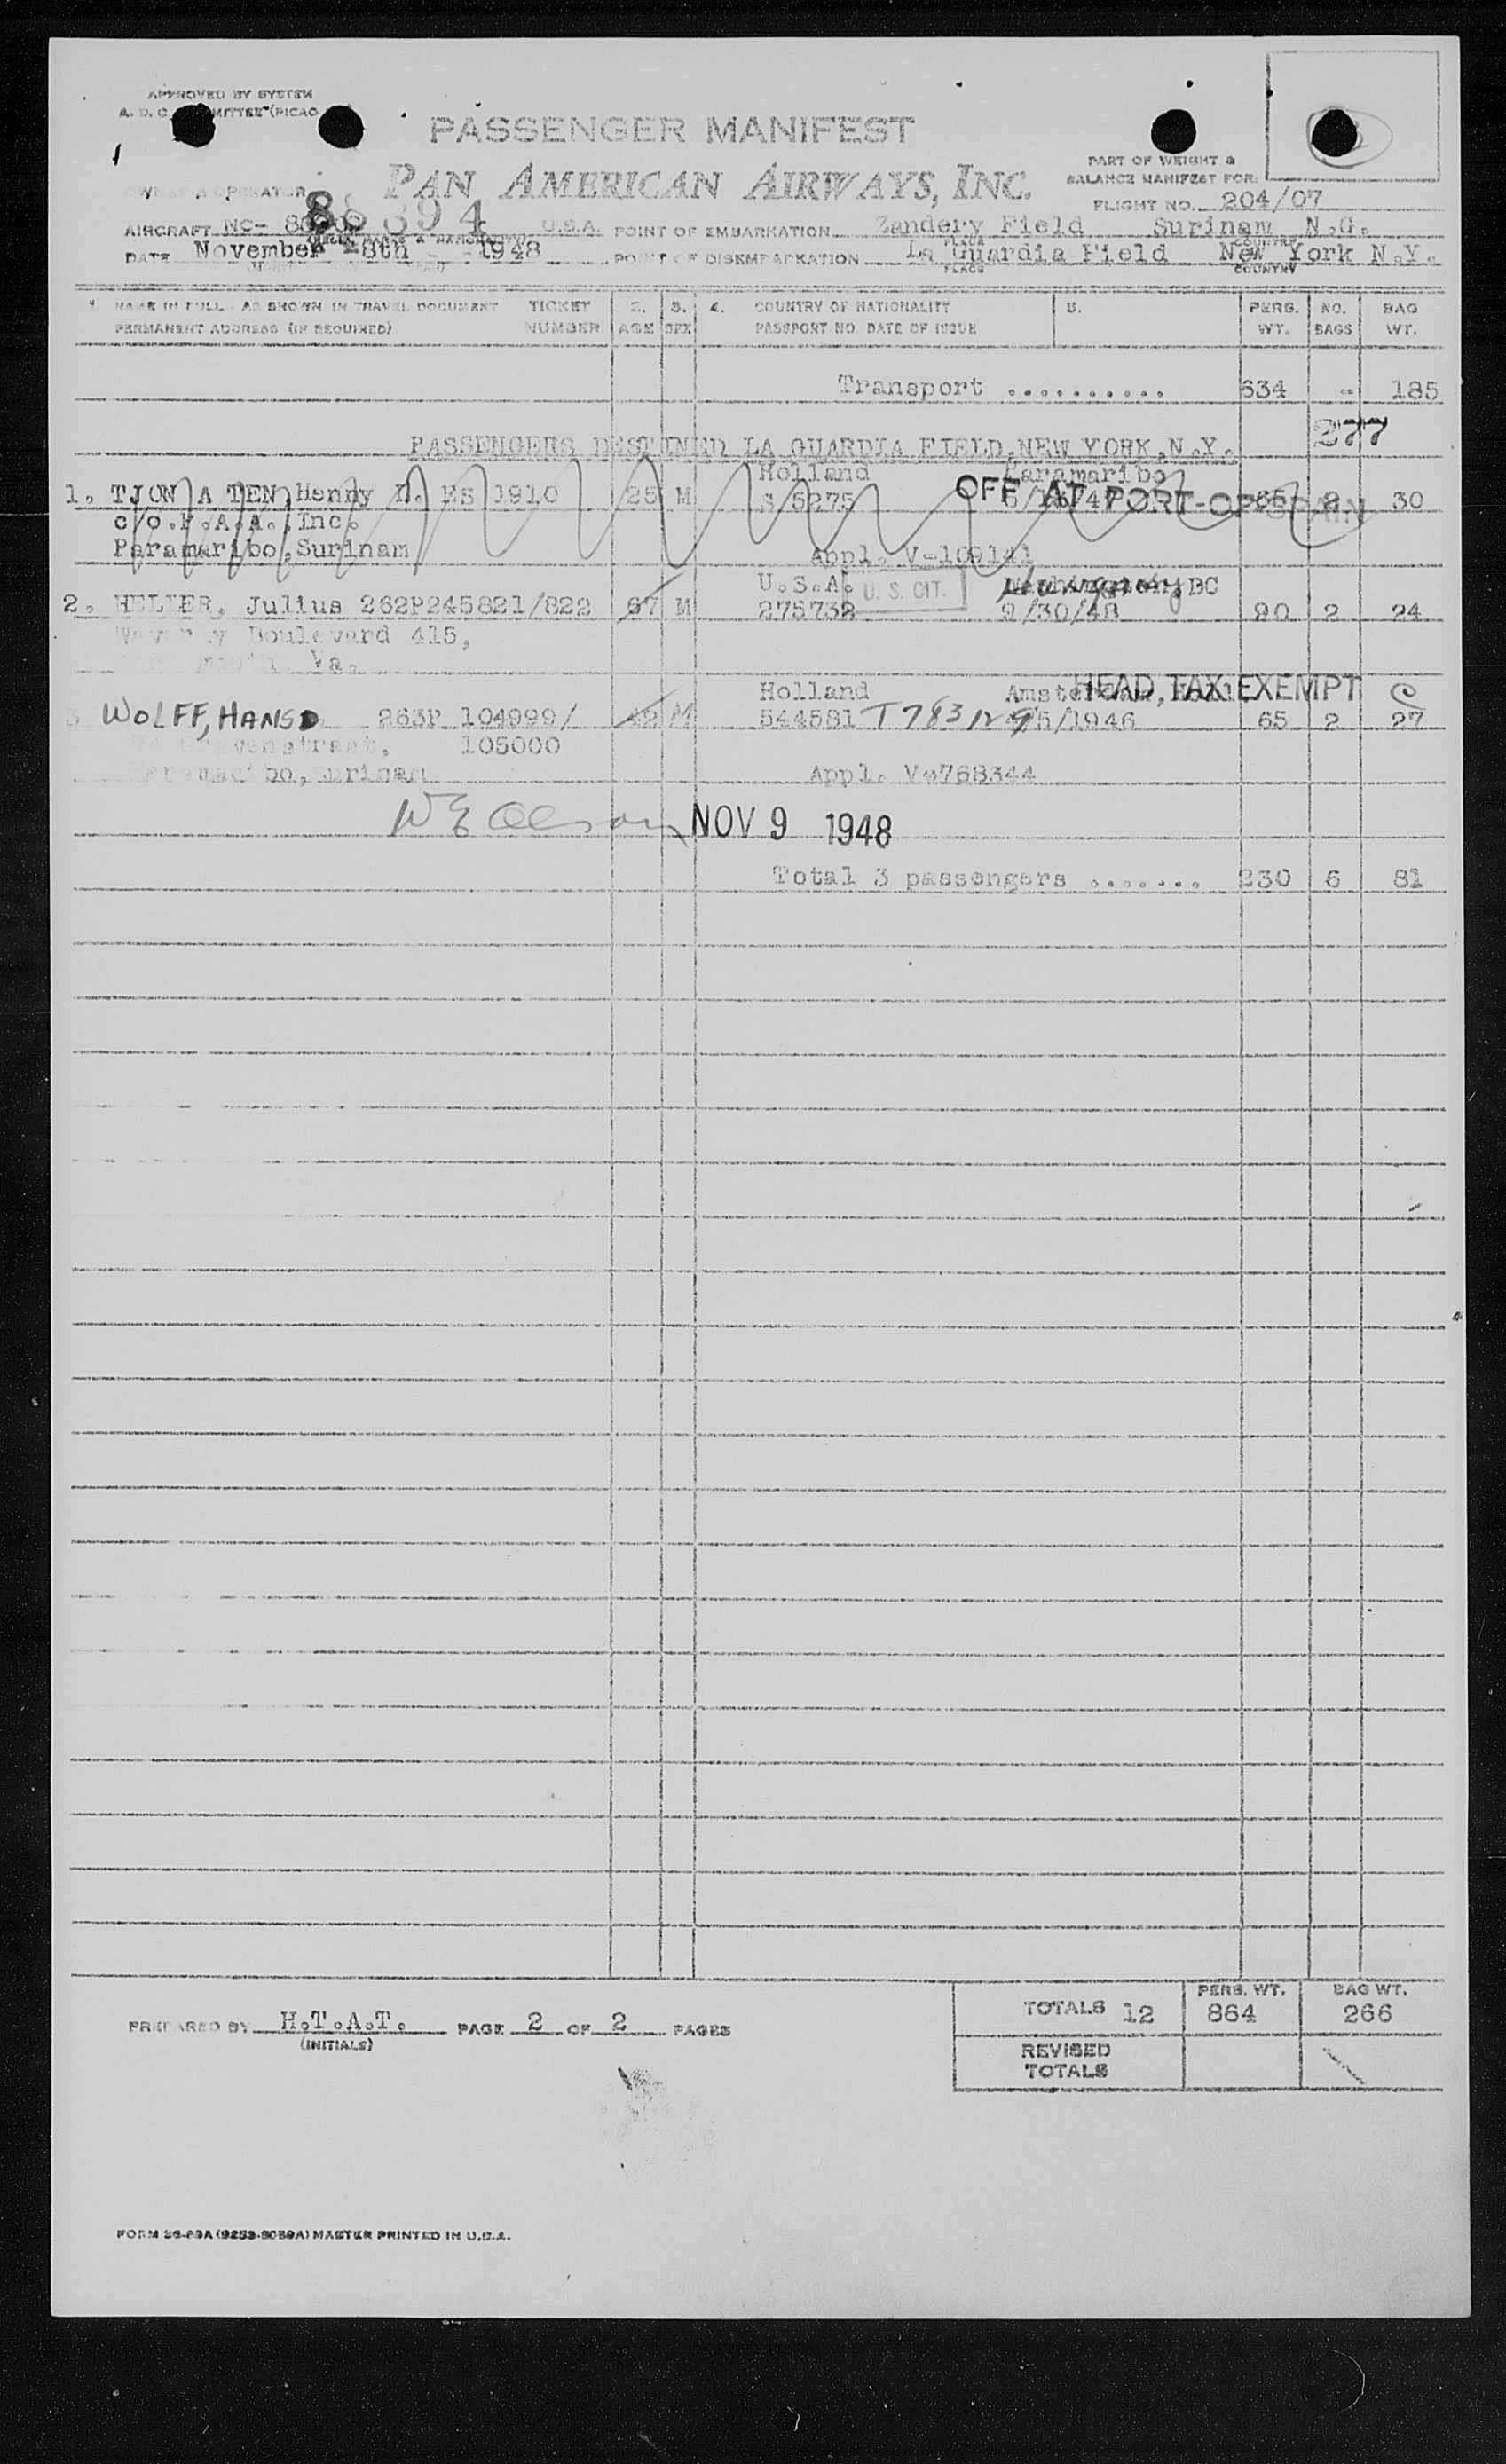 APPROVED BY SYSTEM
A. D. C. COMMITTEE (PICAO
PASSENGER MANIFEST
PAN AMERICAN AIRWAYS, INC.
PART OF WEIGHT &
BALANCE MANIFEST FOR:
FLIGHT NO. 204/07
OWNER & OPERATOR
88394
AIRCRAFT NC- U.S.A. POINT OF EMBARKATION Zandery Field Surinam N.G.
PLACE COUNTRY
DATE November -8th - -1948 POINT OF DISEMBARKATION La Guardia Field New York N.Y.
PLACE COUNTRY
1. NAME IN FULL - AS SHOWN IN TRAVEL DOCUMENT TICKET 2. 3. 4. COUNTRY OF NATIONALITY 5. PERS. NO. BAG
PERMANENT ADDRESS (IF REQUIRED) NUMBER AGE SEX PASSPORT NO DATE OF ISSUE WT. BAGS WT.
Transport .......... 634 - 185
277
PASSENGERS DESTINED LA GUARDIA FIELD, NEW YORK, N.Y.
Holland Paramaribo
1. TJON A TEN, Henny ES 1910 25 M S 5275 65 2 30
OFF AT PORT-OF-SPAIN
c/o.P.A.A., Inc.
Paramaribo, Surinam Appl. V-109141
U.S.A. U. S. CIT. Washington, DC
2. HELLER, Julius 262P245821/822 67 M 275732 9/30/48 90 2 24
Boulevard 415,
Va.
Holland HEAD TAX EXEMPT
WOLFF, HANS D 263P 104999/ 42 M 544581 T783129 5/1946 65 2 27
105000
Surinam Appl. V-768344
NOV 9 1948
Total 3 passengers ....... 230 6 81
TOTALS 12 PERS. WT. 864 BAG WT. 266
PREPARED BY H.T.A.T. PAGE 2 OF 2 PAGES
(INITIALS)
REVISED
TOTALS
FORM 26-89A (9253-8089A) MASTER PRINTED IN U.S.A.